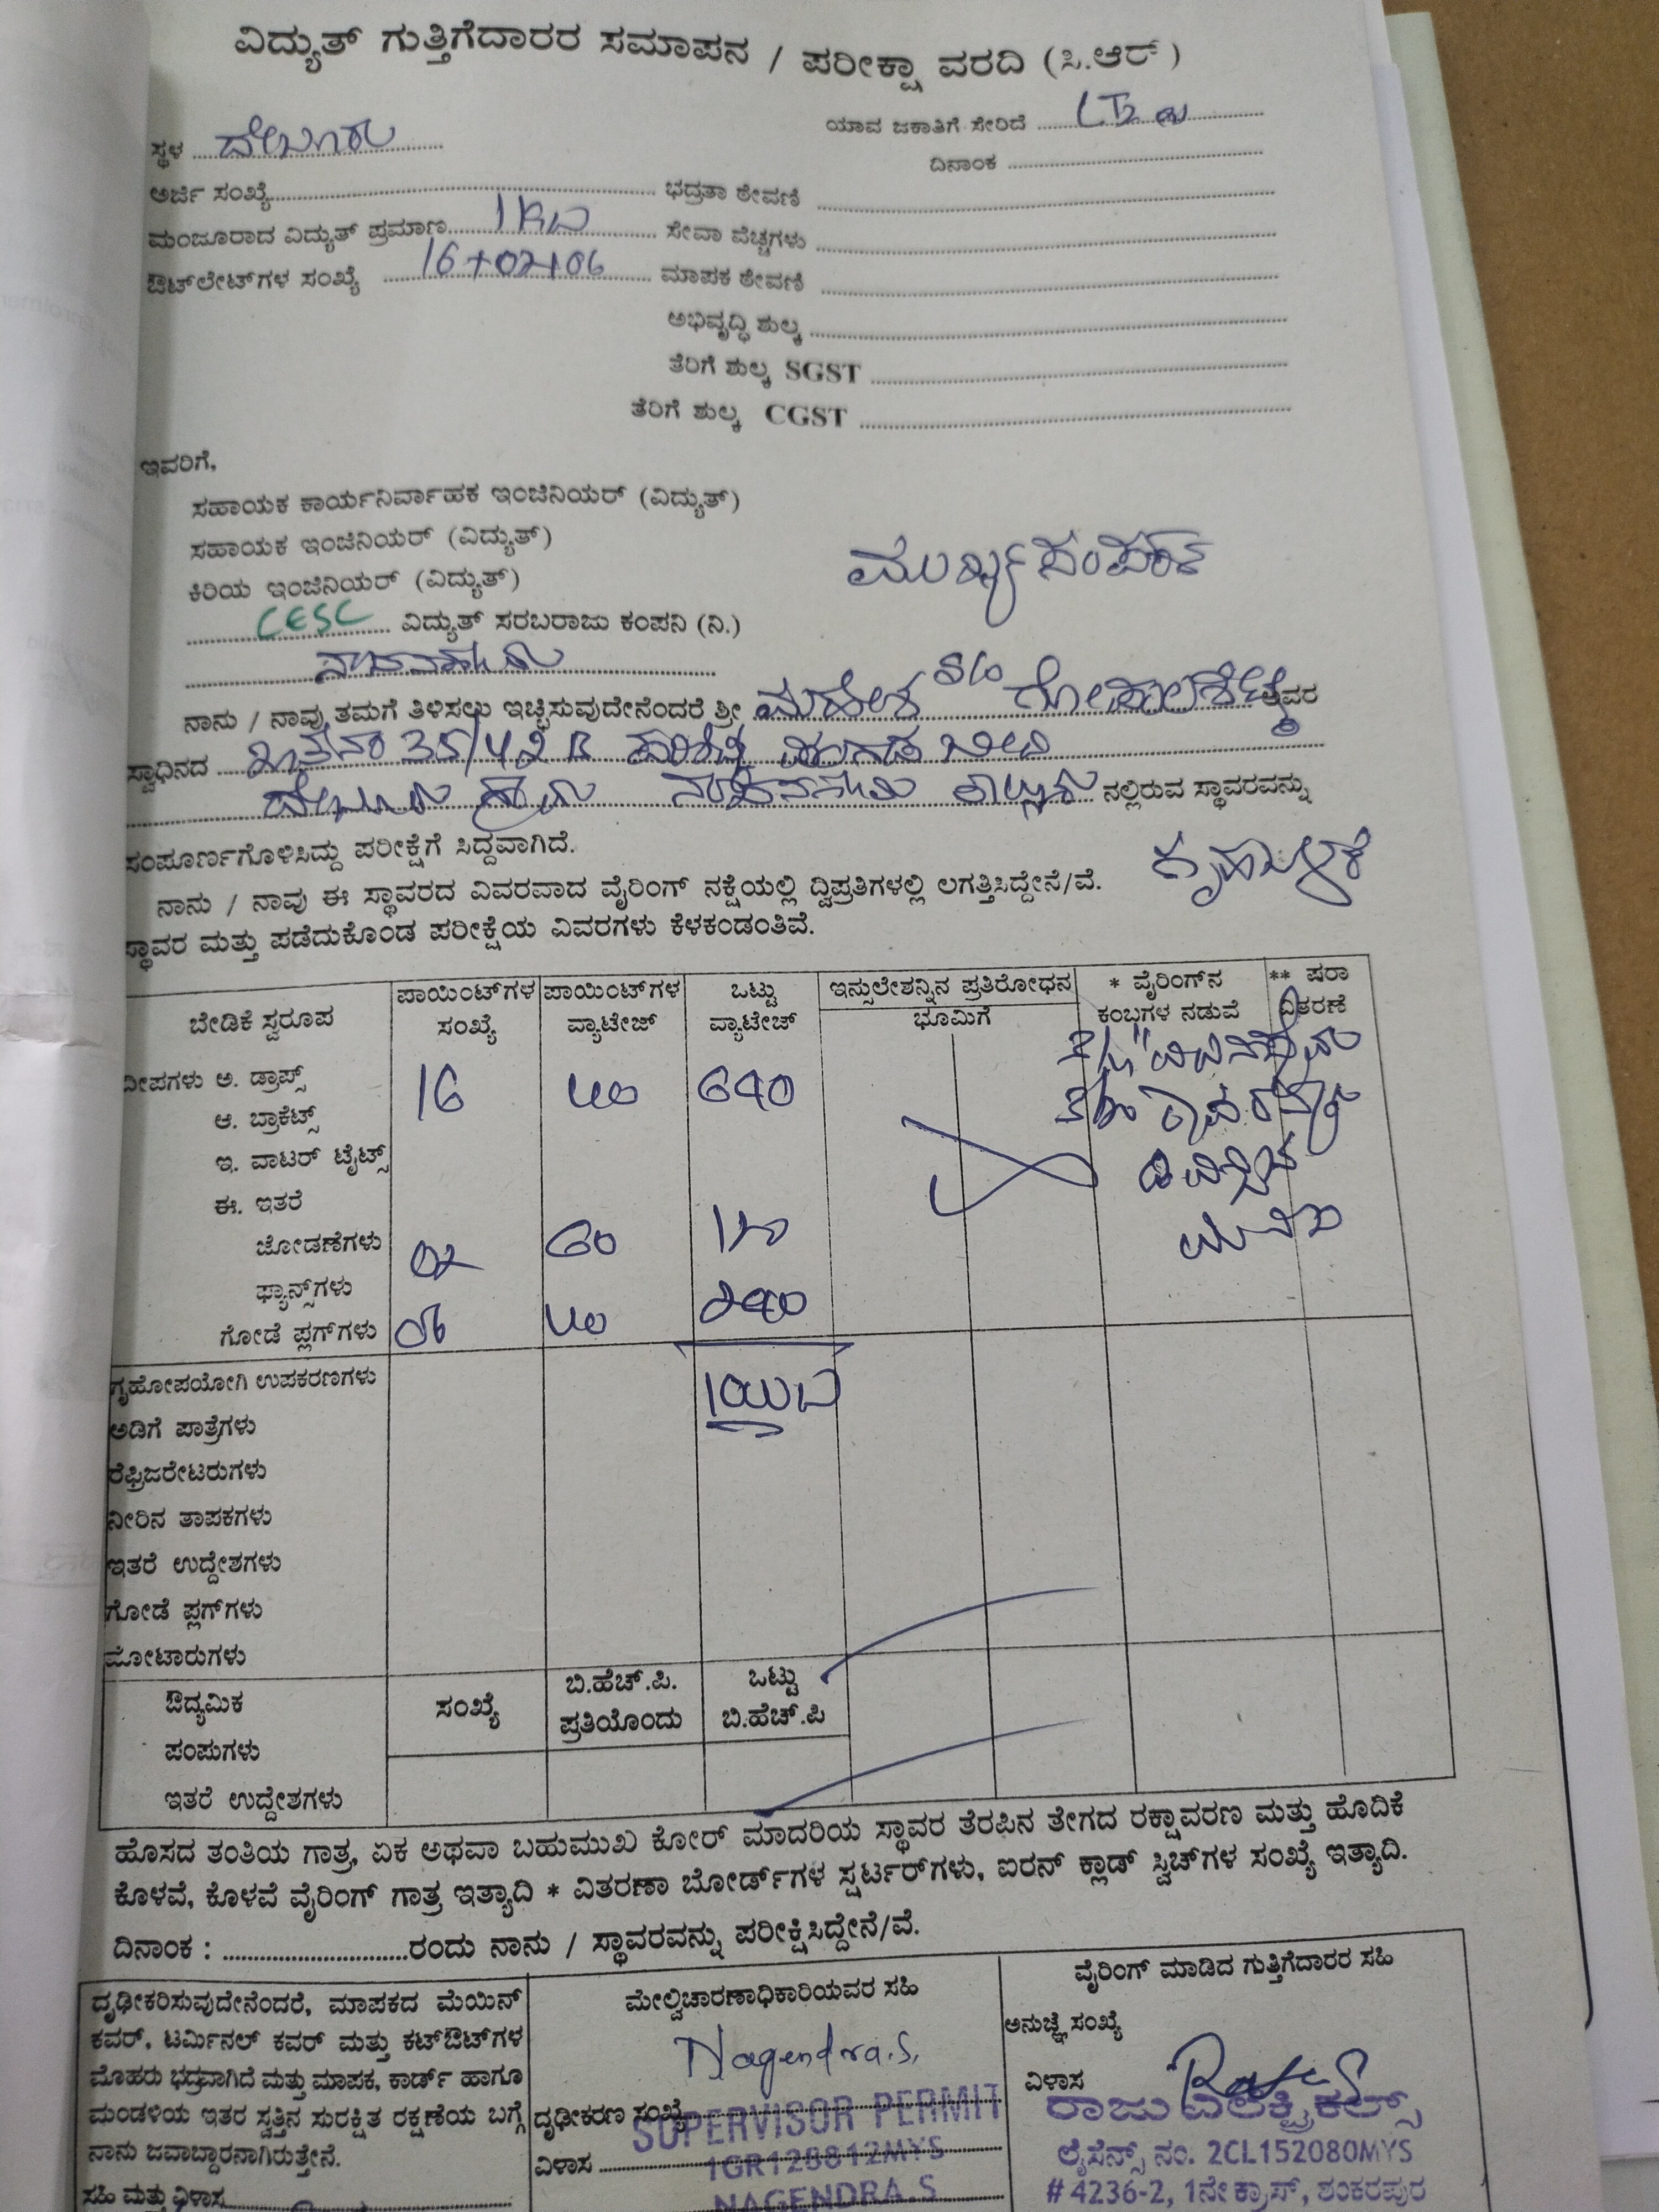 ವಿದ್ಯುತ್ ಗುತ್ತಿಗೆದಾರರ ಸಮಾಪನ / ಪರೀಕ್ಷಾ ವರದಿ (ಸಿ.ಆರ್)
ಯಾವ ಜಕಾತಿಗೆ ಸೇರಿದೆ
ಸ್ಥಳ ದೇಬೂರು
ದಿನಾಂಕ
ಅರ್ಜಿ ಸಂಖ್ಯೆ ಭದ್ರತಾ ಠೇವಣಿ
ಮಂಜೂರಾದ ವಿದ್ಯುತ್ ಪ್ರಮಾಣ 1KW ಸೇವಾ ವೆಚ್ಚಗಳು
ಔಟ್‌ಲೇಟ್‌ಗಳ ಸಂಖ್ಯೆ 16+02+06 ಮಾಪಕ ಠೇವಣಿ
ಅಭಿವೃದ್ಧಿ ಶುಲ್ಕ
ತೆರಿಗೆ ಶುಲ್ಕ SGST
ತೆರಿಗೆ ಶುಲ್ಕ CGST
ಇವರಿಗೆ,
ಸಹಾಯಕ ಕಾರ್ಯನಿರ್ವಾಹಕ ಇಂಜಿನಿಯರ್ (ವಿದ್ಯುತ್)
ಸಹಾಯಕ ಇಂಜಿನಿಯರ್ (ವಿದ್ಯುತ್)
ಕಿರಿಯ ಇಂಜಿನಿಯರ್ (ವಿದ್ಯುತ್)
CESC ವಿದ್ಯುತ್ ಸರಬರಾಜು ಕಂಪನಿ (ನಿ.)
ನಾನು / ನಾವು ತಮಗೆ ತಿಳಿಸಲು ಇಚ್ಛಿಸುವುದೇನೆಂದರೆ ಶ್ರೀ ಮಹೇಶ S/o ಗೋಪಾಲಶೆಟ್ಟಿ ಅವರ
ಸ್ವಾಧಿನದ 35/42B
ದೇಬೂರು ಗ್ರಾಮ ನಂಜನಗೂಡು ತಾಲ್ಲೂಕು ನಲ್ಲಿರುವ ಸ್ಥಾವರವನ್ನು
ಸಂಪೂರ್ಣಗೊಳಿಸಿದ್ದು ಪರೀಕ್ಷೆಗೆ ಸಿದ್ದವಾಗಿದೆ.
ಗೃಹಬಳಕೆ
ನಾನು / ನಾವು ಈ ಸ್ಥಾವರದ ವಿವರವಾದ ವೈರಿಂಗ್ ನಕ್ಷೆಯಲ್ಲಿ ದ್ವಿಪ್ರತಿಗಳಲ್ಲಿ ಲಗತ್ತಿಸಿದ್ದೇನೆ/ವೆ.
ಸ್ಥಾವರ ಮತ್ತು ಪಡೆದುಕೊಂಡ ಪರೀಕ್ಷೆಯ ವಿವರಗಳು ಕೆಳಕಂಡಂತಿವೆ.
ಬೇಡಿಕೆ ಸ್ವರೂಪ ಪಾಯಿಂಟ್‌ಗಳ ಸಂಖ್ಯೆ ಪಾಯಿಂಟ್‌ಗಳ ವ್ಯಾಟೇಜ್ ಒಟ್ಟು ವ್ಯಾಟೇಜ್ ಇನ್ಸುಲೇಶನ್ನಿನ ಪ್ರತಿರೋಧನ ಭೂಮಿಗೆ * ವೈರಿಂಗ್‌ನ ಕಂಬಗಳ ನಡುವೆ ** ಷರಾ ವಿತರಣೆ
ದೀಪಗಳು ಅ. ಡ್ರಾಪ್ಸ್ 16 40 640
ಆ. ಬ್ರಾಕೆಟ್ಸ್
ಇ. ವಾಟರ್ ಟೈಟ್ಸ್
ಈ. ಇತರೆ
ಜೋಡಣೆಗಳು 02 60 120
ಫ್ಯಾನ್ಸ್‌ಗಳು
ಗೋಡೆ ಪ್ಲಗ್‌ಗಳು 06 40 240
ಗೃಹೋಪಯೋಗಿ ಉಪಕರಣಗಳು
ಅಡಿಗೆ ಪಾತ್ರೆಗಳು
ರೆಫ್ರಿಜರೇಟರುಗಳು
ನೀರಿನ ತಾಪಕಗಳು
ಇತರೆ ಉದ್ದೇಶಗಳು
ಗೋಡೆ ಪ್ಲಗ್‌ಗಳು
ಮೋಟಾರುಗಳು
ಔದ್ಯಮಿಕ ಸಂಖ್ಯೆ ಬಿ.ಹೆಚ್.ಪಿ. ಪ್ರತಿಯೊಂದು ಒಟ್ಟು ಬಿ.ಹೆಚ್.ಪಿ
ಪಂಪುಗಳು
ಇತರೆ ಉದ್ದೇಶಗಳು
ಹೊಸದ ತಂತಿಯ ಗಾತ್ರ, ಏಕ ಅಥವಾ ಬಹುಮುಖ ಕೋರ್ ಮಾದರಿಯ ಸ್ಥಾವರ ತೆರಪಿನ ತೇಗದ ರಕ್ಷಾವರಣ ಮತ್ತು ಹೊದಿಕೆ
ಕೊಳವೆ, ಕೊಳವೆ ವೈರಿಂಗ್ ಗಾತ್ರ ಇತ್ಯಾದಿ * ವಿತರಣಾ ಬೋರ್ಡ್‌ಗಳ ಸ್ಟರ್ಟರ್‌ಗಳು, ಐರನ್ ಕ್ಲಾಡ್ ಸ್ವಿಚ್‌ಗಳ ಸಂಖ್ಯೆ ಇತ್ಯಾದಿ.
ದಿನಾಂಕ : ರಂದು ನಾನು / ಸ್ಥಾವರವನ್ನು ಪರೀಕ್ಷಿಸಿದ್ದೇನೆ/ವೆ.
ದೃಢೀಕರಿಸುವುದೇನೆಂದರೆ, ಮಾಪಕದ ಮೆಯಿನ್
ಕವರ್, ಟರ್ಮಿನಲ್ ಕವರ್ ಮತ್ತು ಕಟ್‌ಔಟ್‌ಗಳ
ಮೊಹರು ಭದ್ರವಾಗಿದೆ ಮತ್ತು ಮಾಪಕ, ಕಾರ್ಡ್ ಹಾಗೂ
ಮಂಡಳಿಯ ಇತರ ಸ್ವತ್ತಿನ ಸುರಕ್ಷಿತ ರಕ್ಷಣೆಯ ಬಗ್ಗೆ
ನಾನು ಜವಾಬ್ದಾರನಾಗಿರುತ್ತೇನೆ.
ಸಹಿ ಮತ್ತು ವಿಳಾಸ
ಮೇಲ್ವಿಚಾರಣಾಧಿಕಾರಿಯವರ ಸಹಿ
Nagendra.S.
ದೃಢೀಕರಣ ಸಂಖ್ಯೆ
SUPERVISOR PERMIT
ವಿಳಾಸ
1GR128812MYS
NAGENDRA.S
ವೈರಿಂಗ್ ಮಾಡಿದ ಗುತ್ತಿಗೆದಾರರ ಸಹಿ
ಅನುಜ್ಞೆ ಸಂಖ್ಯೆ
ವಿಳಾಸ
ರಾಜು ಎಲೆಕ್ಟ್ರಿಕಲ್ಸ್
ಲೈಸೆನ್ಸ್ ನಂ. 2CL152080MYS
# 4236-2, 1ನೇ ಕ್ರಾಸ್, ಶಂಕರಪುರ